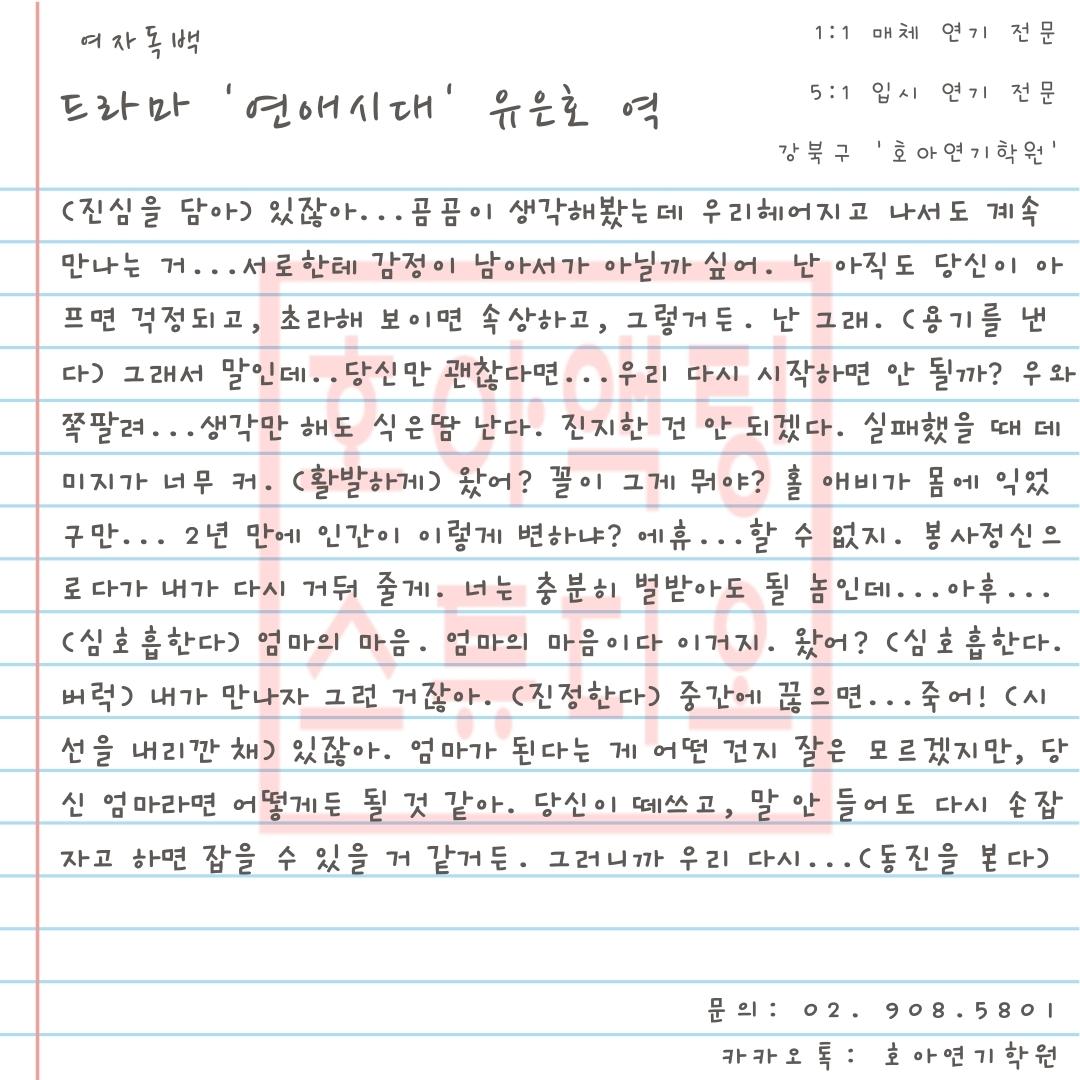 여자독백
드라마 '연애시대' 유은호 역
1:1 매체 연기 전문
5:1 입시 연기 전문
강북구 '호아연기학원'
(진심을 담아) 있잖아...곰곰이 생각해봤는데 우리헤어지고 나서도 계속
만나는 거...서로한테 감정이 남아서가 아닐까 싶어. 난 아직도 당신이 아
프면 걱정되고, 초라해 보이면 속상하고, 그렇거든. 난 그래. (용기를 낸
다) 그래서 말인데..당신만 괜찮다면...우리 다시 시작하면 안 될까? 우와
쪽팔려...생각만 해도 식은땀 난다. 진지한 건 안 되겠다. 실패했을 때 데
미지가 너무 커. (활발하게) 왔어? 꼴이 그게 뭐야? 홀 애비가 몸에 익었
구만... 2년 만에 인간이 이렇게 변하냐? 에휴...할 수 없지. 봉사정신으
로다가 내가 다시 거둬 줄게. 너는 충분히 벌받아도 될 놈인데...아후...
(심호흡한다) 엄마의 마음. 엄마의 마음이다 이거지. 왔어? (심호흡한다.
버럭) 내가 만나자 그런 거잖아. (진정한다) 중간에 끊으면...죽어! (시
선을 내리깐 채) 있잖아. 엄마가 된다는 게 어떤 건지 잘은 모르겠지만, 당
신 엄마라면 어떻게든 될 것 같아. 당신이 떼쓰고, 말 안 들어도 다시 손잡
자고 하면 잡을 수 있을 거 같거든. 그러니까 우리 다시...(동진을 본다)
호아액팅
스튜디오
문의: 02. 908.5801
카카오톡: 호아연기학원